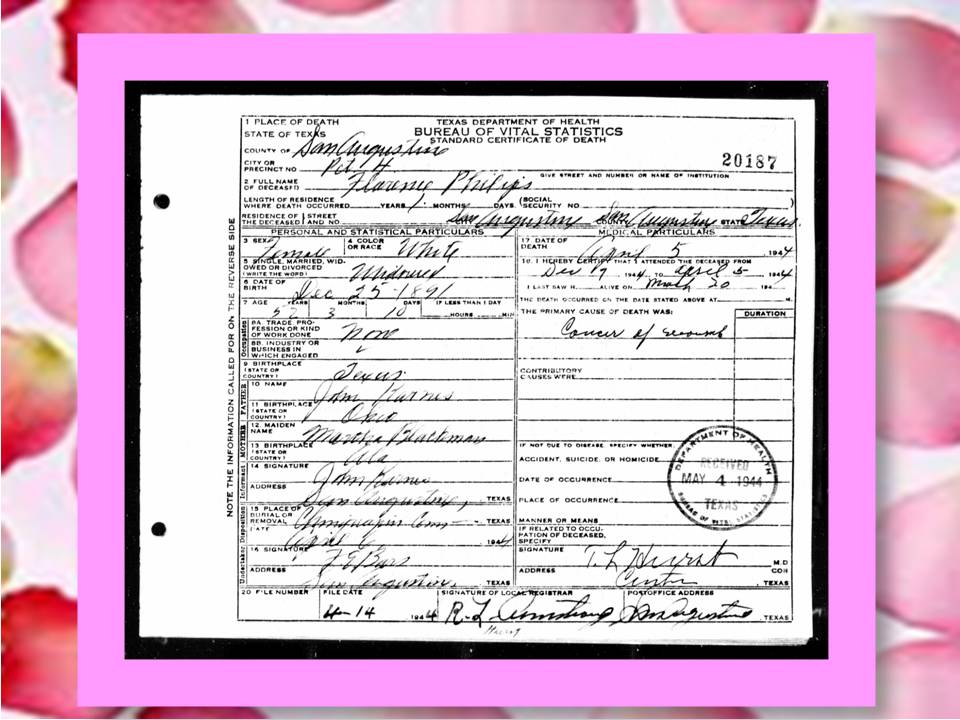 NOTE THE INFORMATION CALLED FOR ON THE REVERSE SIDE
1 PLACE OF DEATH
STATE OF TEXAS
TEXAS DEPARTMENT OF HEALTH
BUREAU OF VITAL STATISTICS
STANDARD CERTIFICATE OF DEATH
COUNTY OF San Augustine
CITY OR PRECINCT NO Pct 4
20187
GIVE STREET AND NUMBER OR NAME OF INSTITUTION
2 FULL NAME OF DECEASED Florence Philips
LENGTH OF RESIDENCE WHERE DEATH OCCURRED YEARS MONTHS DAYS (SOCIAL SECURITY NO
RESIDENCE OF THE DECEASED STREET AND NO. San Augustine COUNTY San Augustine STATE Texas
PERSONAL AND STATISTICAL PARTICULARS
3 SEX Female 4 COLOR OR RACE White
5 SINGLE, MARRIED, WIDOWED OR DIVORCED (WRITE THE WORD)
6 DATE OF BIRTH Dec 25-1891
7 AGE YEARS MONTHS DAYS IF LESS THAN 1 DAY
52 3 10 HOURS MIN
Occupation
8A. TRADE, PROFESSION OR KIND OF WORK DONE None
8B. INDUSTRY OR BUSINESS IN WHICH ENGAGED
9 BIRTHPLACE (STATE OR COUNTRY) Texas
FATHER
10 NAME John Karnes
11 BIRTHPLACE (STATE OR COUNTRY) Ohio
MOTHER
12. MAIDEN NAME Martha Blackman
13 BIRTHPLACE (STATE OR COUNTRY) Ala
Informant
14 SIGNATURE John Karnes
ADDRESS San Augustine, TEXAS
Disposition
15 PLACE OF BURIAL OR REMOVAL Chinquapin Cem - TEXAS
DATE April 6 1944
Undertaker
16 SIGNATURE
ADDRESS San Augustine, TEXAS
MEDICAL PARTICULARS
17 DATE OF DEATH April 5 1944
18. I HEREBY CERTIFY THAT I ATTENDED THE DECEASED FROM
Dec 17 1944 TO April 5 1944
I LAST SAW H ALIVE ON March 20 194
THE DEATH OCCURRED ON THE DATE STATED ABOVE AT M.
THE PRIMARY CAUSE OF DEATH WAS: DURATION
Cancer of
CONTRIBUTORY CAUSES WERE
IF NOT DUE TO DISEASE, SPECIFY WHETHER,
ACCIDENT, SUICIDE, OR HOMICIDE
DATE OF OCCURRENCE
PLACE OF OCCURRENCE
MANNER OR MEANS
IF RELATED TO OCCUPATION OF DECEASED, SPECIFY
DEPARTMENT OF HEALTH
RECEIVED
MAY 4 1944
TEXAS
BUREAU OF VITAL STATISTICS
SIGNATURE T. L Hurst M.D
ADDRESS Center TEXAS
20 FILE NUMBER
FILE DATE
4-14 1944
SIGNATURE OF LOCAL REGISTRAR
R-L Armstrong
POSTOFFICE ADDRESS
San Augustine TEXAS